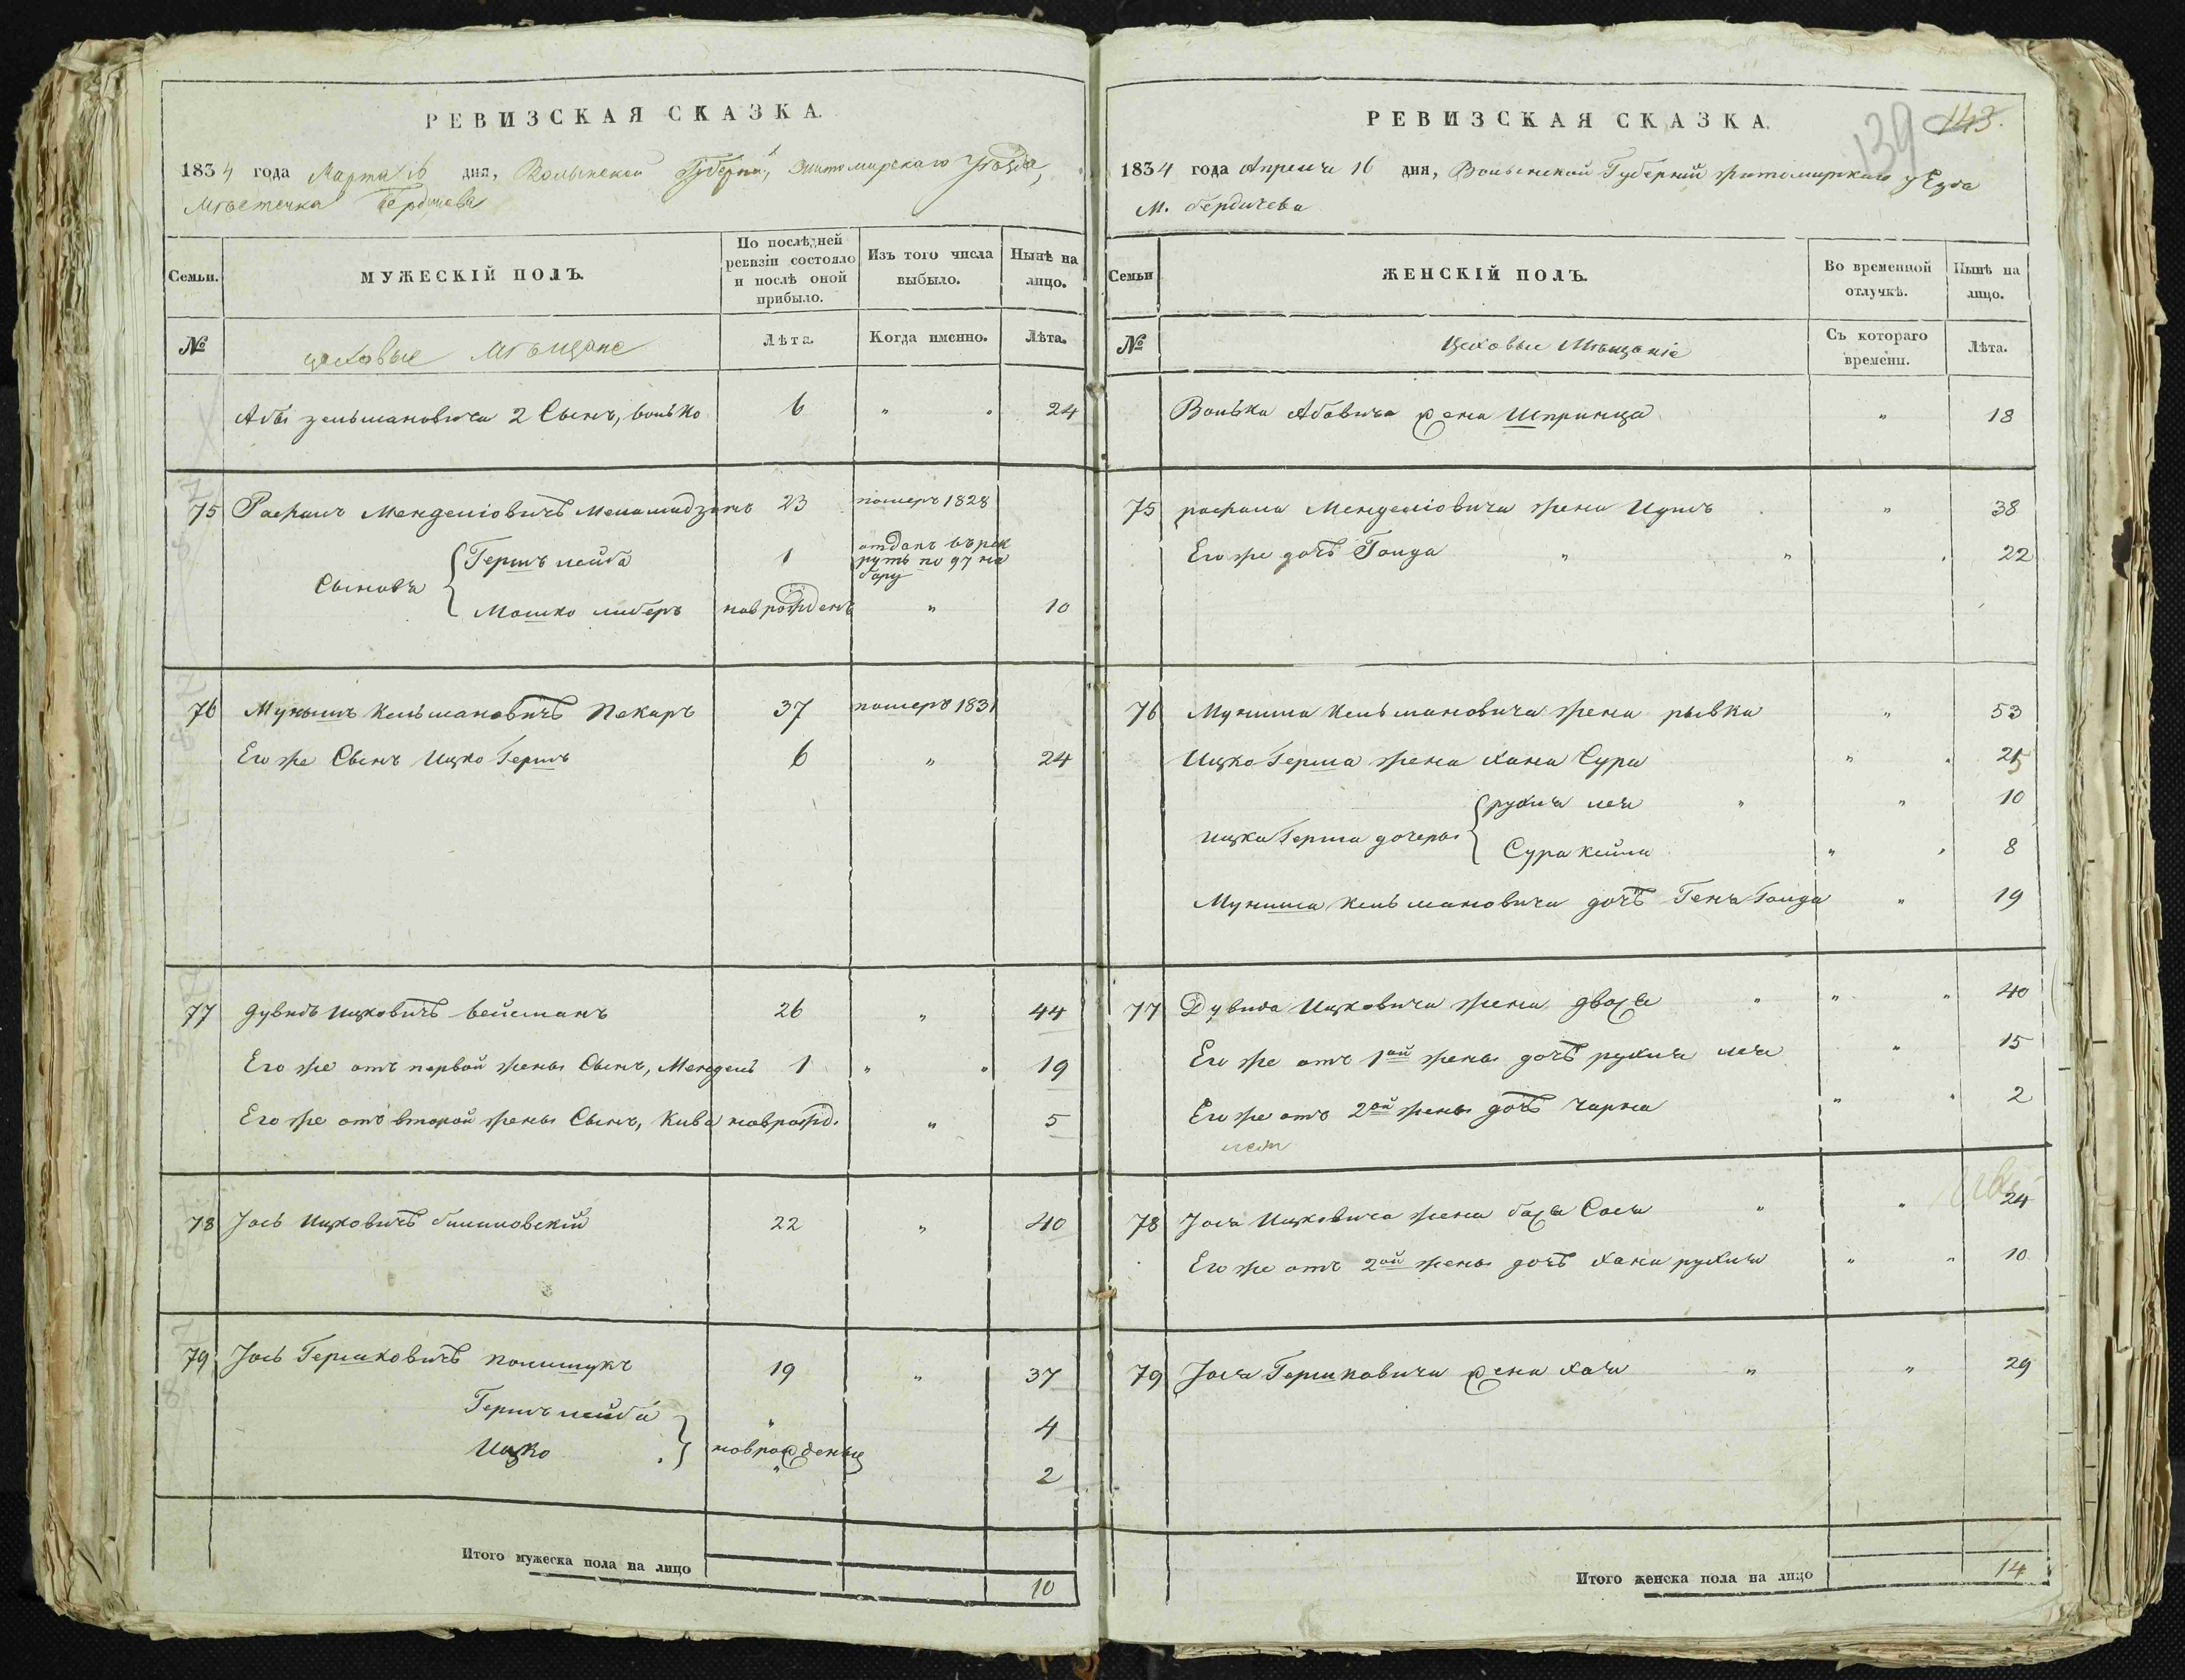 РЕВИЗСКАЯ СКАЗКА.
1834 года Марта 16 дня, Волынской Губерніи, Житомирскаго Уѣзда,
Мѣстечка Бердичева
Семьи.
МУЖЕСКІЙ ПОЛЪ.
По послѣдней ревизіи состояло и послѣ оной прибыло.
Изъ того числа выбыло.
Нынѣ на лицо.
№
цеховые Мѣщане
Лѣта.
Когда именно.
Лѣта.
Абы зельмановича 2 Сынъ, волько 6 " " 24
75 Рафаилъ Менделіовичъ 23 померъ 1828
Сыновя { Гершъ лейба 1 отданъ въ рекрутъ по 97 набору
Мошко либеръ новрожденъ " 10
76 Мунишъ Кельмановичъ Пекаръ 37 померъ 1831
Его же Сынъ Ицко Гершъ 6 " 24
77 дувидъ Ицковичъ вейсманъ 26 " 44
Его же отъ первой жены Сынъ, Мендель 1 " " 19
Его же отъ второй жены Сынъ, Кива новрожд. " 5
78 Јось Ицковичъ билиловскій 22 " 40
79 Јось Гершковичъ полищукъ 19 " 37
Гершъ лейба " 4
Ицко } новрожденны " 2
Итого мужеска пола на лицо 10
РЕВИЗСКАЯ СКАЗКА.
139 143.
1834 года Апреля 16 дня, Волынской Губерніи житомирскаго уезда
м. бердичева
Семьи
ЖЕНСКІЙ ПОЛЪ.
Во временной отлучкѣ.
Нынѣ на лицо.
№
Цеховые Мѣщаніе
Съ котораго времени.
Лѣта.
Волька Абовича жена Шпринца " 18
75 рафаила Менделіовича жена Цупъ " 38
Его же дочь Голда " " " 22
76 Муниша Кельмановича жена рывка " 53
Ицко Герша жена хана Сура " " 25
Ицка Герша дочеры { рухля лея " " 10
Сура кейла " " 8
Муниша Кельмановича дочь Геня Голда " 19
77 Дувида Ицковича жена двося " " " 40
Его же отъ 1ой жены дочь рухля лея " 15
Его же отъ 2ой жены дочь чарна " " 2
78 Јося Ицковича жена бася Сося " " 24
Его же отъ 2ой жены дочь хана рухля " " 10
79 Јося Гершковича жена хая " " 29
Итого женска пола на лицо 14